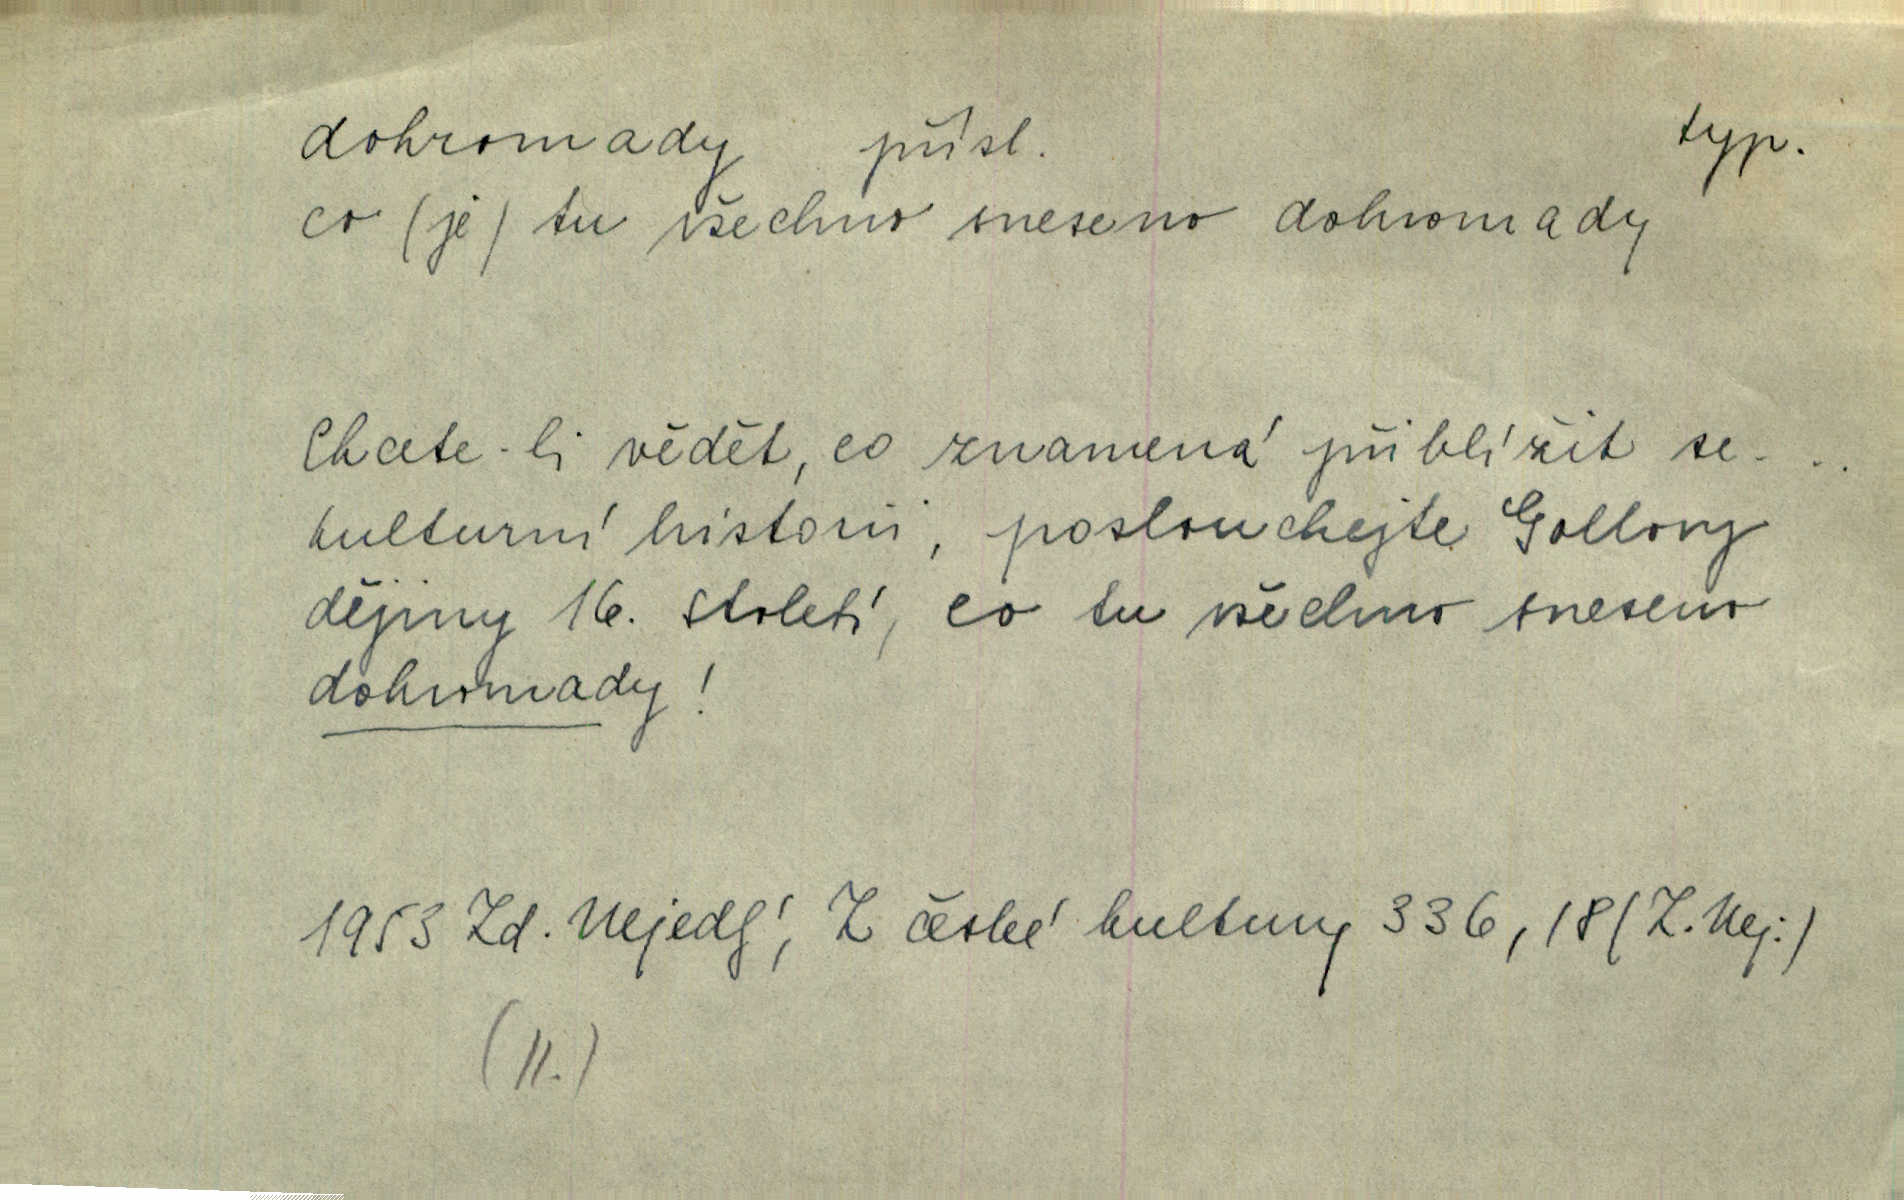 dohromady přísl. typ.
co (je) tu všechno sneseno dohromady
Chcete-li vědět, co znamená přiblížit se...
kulturní historii, poslouchejte Gollovy
dějiny 16. století, co tu všechno sneseno
dohromady!
1953 Zd. Nejedlý, Z české kultury 336, 18 (Z. Nej.)
(II.)